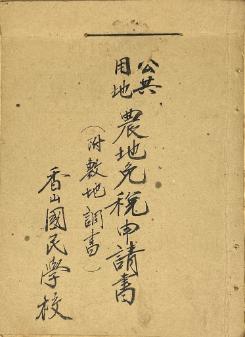 公共用地 農地免稅申請書
（附敷地調書）
香山國民學校